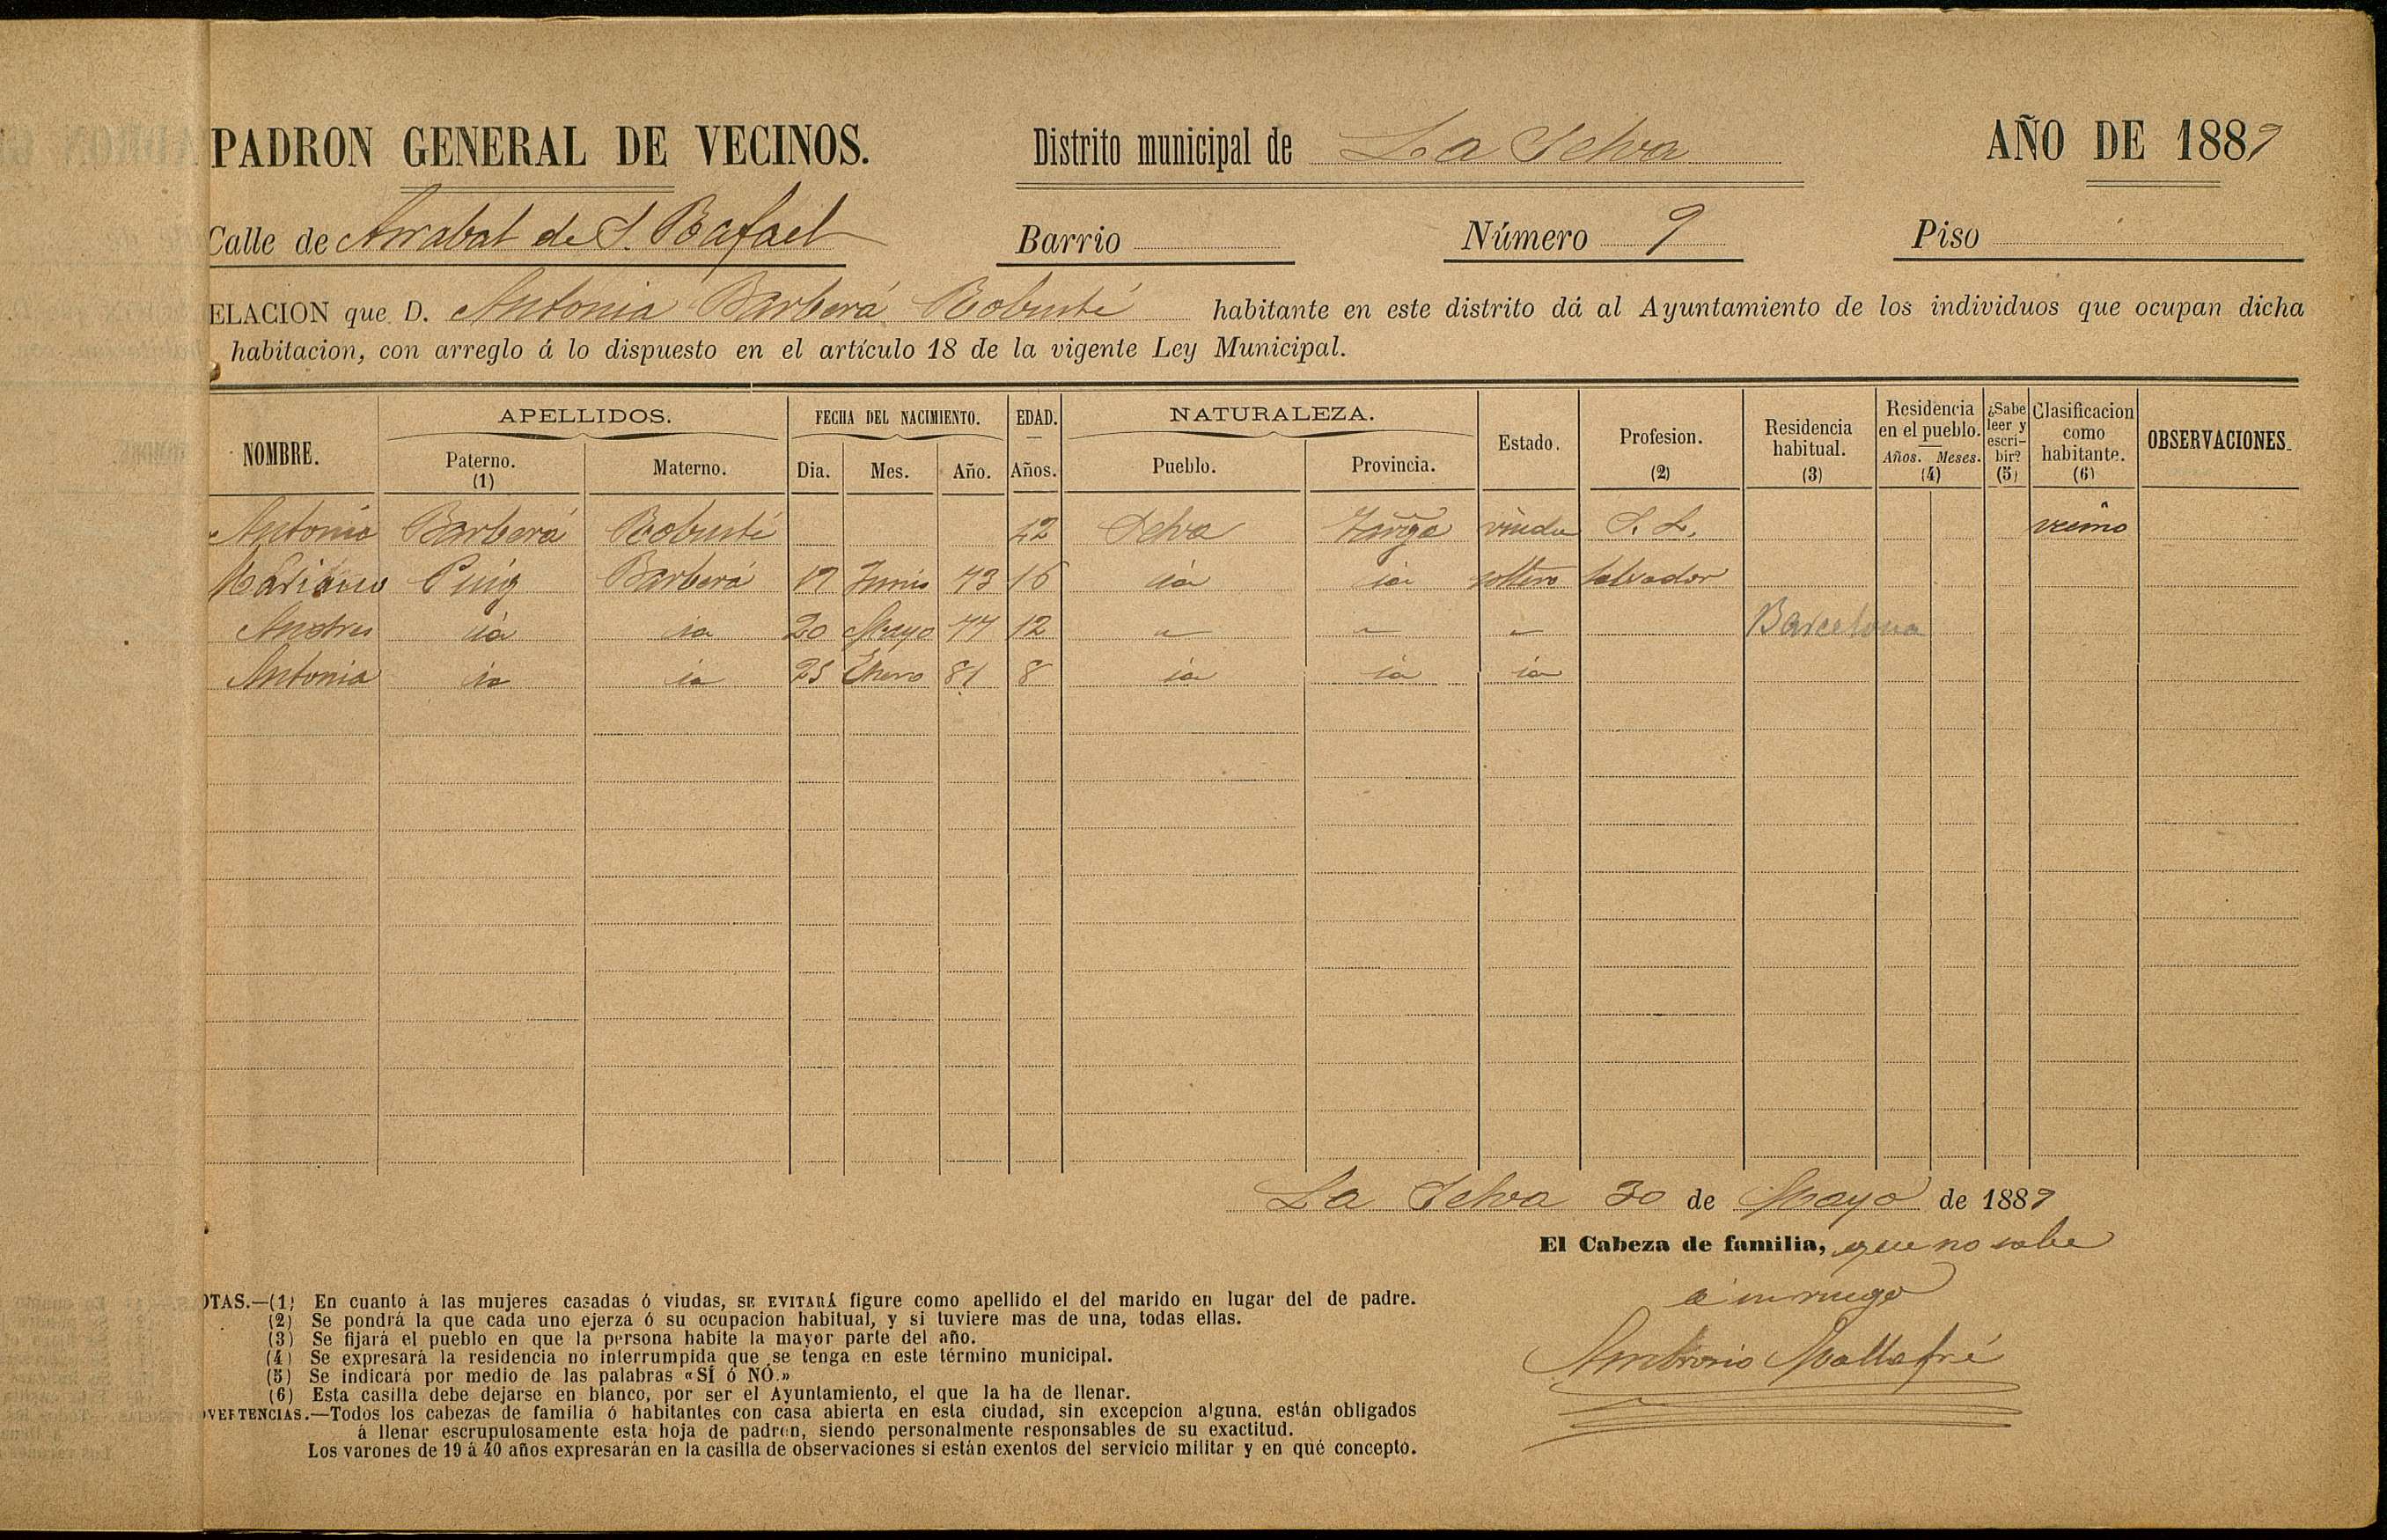 PADRON GENERAL DE VECINOS. Distrito municipal de La Selva AÑO DE 1889
Calle de Arrabal de S. Rafael Barrio Número 9 Piso
ELACION que D. Antonia Barberá Robusté habitante en este distrito dá al Ayuntamiento de los individuos que ocupan dicha
habitacion, con arreglo á lo dispuesto en el artículo 18 de la vigente Ley Municipal.
NOMBRE. APELLIDOS. Paterno. (1) Materno. FECHA DEL NACIMIENTO. Dia. Mes. Año. EDAD. Años. NATURALEZA. Pueblo. Provincia. Estado. Profesion. (2) Residencia habitual. (3) Residencia en el pueblo. Años. Meses. (4) ¿Sabe leer y escribir? (5) Clasificacion como habitante. (6) OBSERVACIONES.
Antonia Barberá Robusté 42 Selva viuda S. L. vecino
Mariano Puig Barberá 17 Junio 73 16 id id soltero labrador
Andres id id 20 Mayo 77 12 " " " Barcelona
Antonia id id 25 Enero 81 8 id id id
La Selva 30 de Mayo de 1889
El Cabeza de familia, que no sabe
á mi ruego
Ambrosio Mallafré
OTAS.—(1) En cuanto á las mujeres casadas ó viudas, SE EVITARÁ figure como apellido el del marido en lugar del de padre.
(2) Se pondrá la que cada uno ejerza ó su ocupacion habitual, y si tuviere mas de una, todas ellas.
(3) Se fijará el pueblo en que la persona habite la mayor parte del año.
(4) Se expresará la residencia no interrumpida que se tenga en este término municipal.
(5) Se indicará por medio de las palabras «SÍ ó NÓ.»
(6) Esta casilla debe dejarse en blanco, por ser el Ayuntamiento, el que la ha de llenar.
DVERTENCIAS.—Todos los cabezas de familia ó habitantes con casa abierta en esta ciudad, sin excepcion alguna, están obligados
á llenar escrupulosamente esta hoja de padron, siendo personalmente responsables de su exactitud.
Los varones de 19 á 40 años expresarán en la casilla de observaciones si están exentos del servicio militar y en qué concepto.